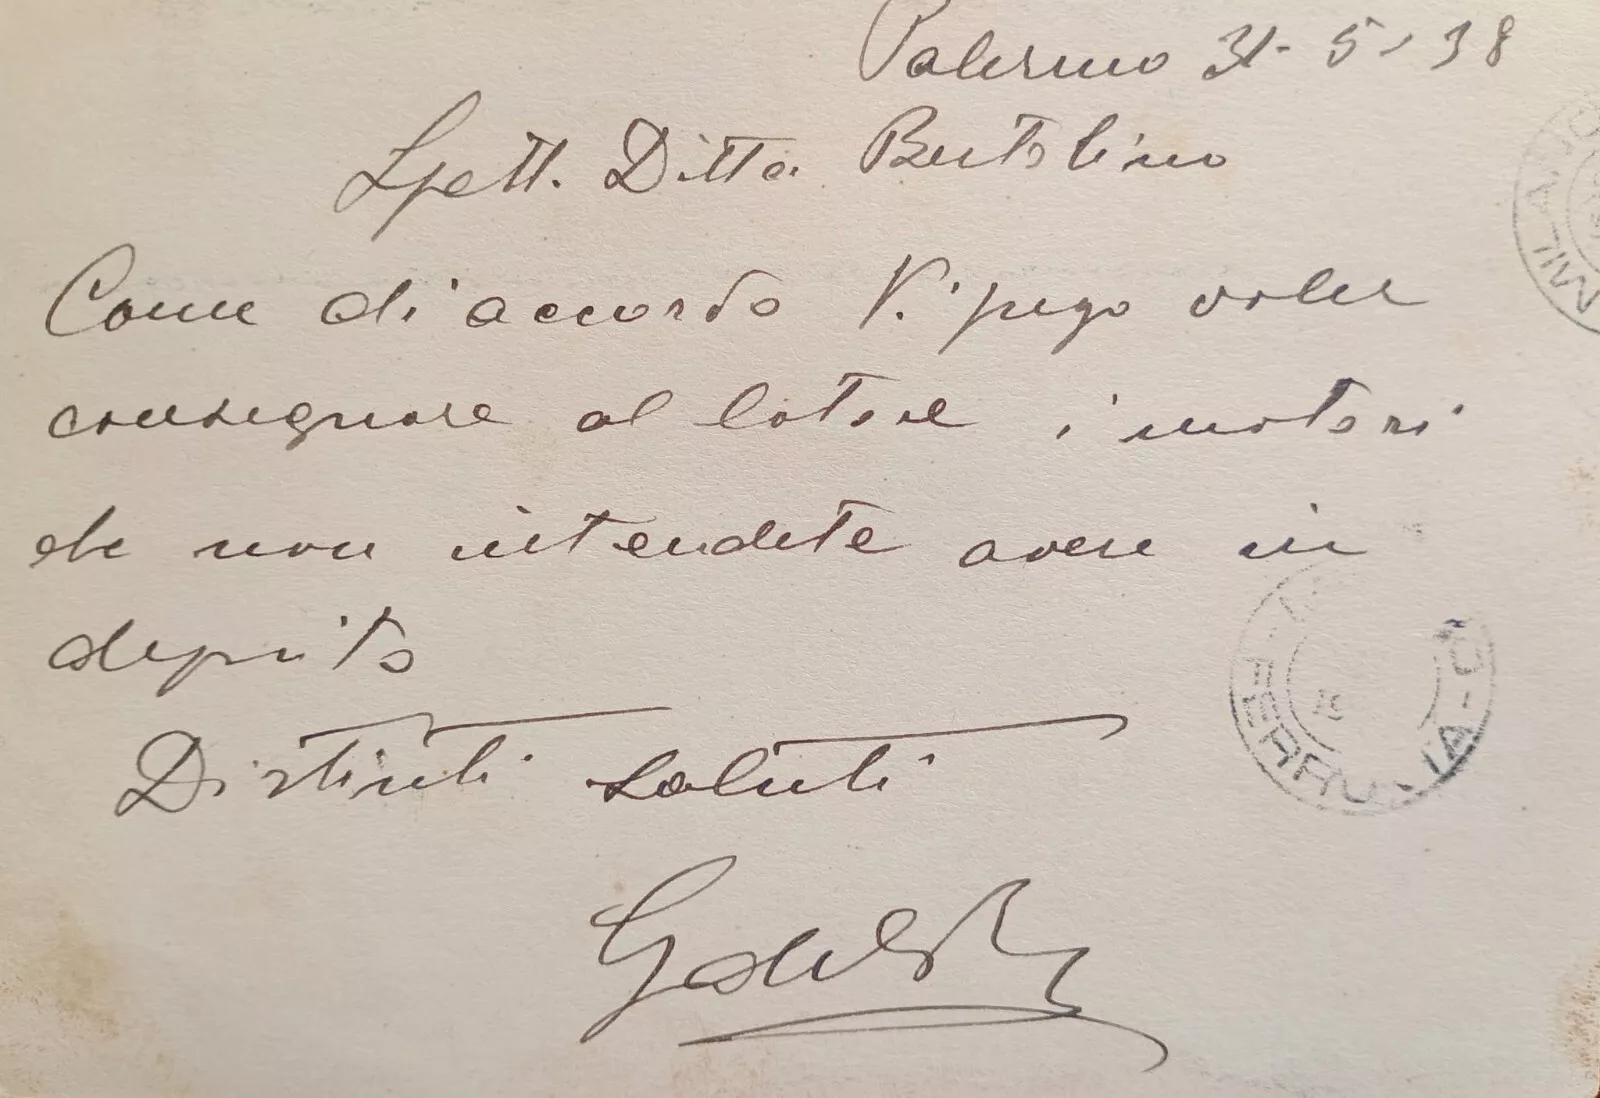 Palermo 31-5-38
Spett. Ditta Bertolino
Come di accordo V. prego voler
consegnare al latore i motori
che non intendete avere in
deposito
Distinti saluti
MILANO
FERROVIA